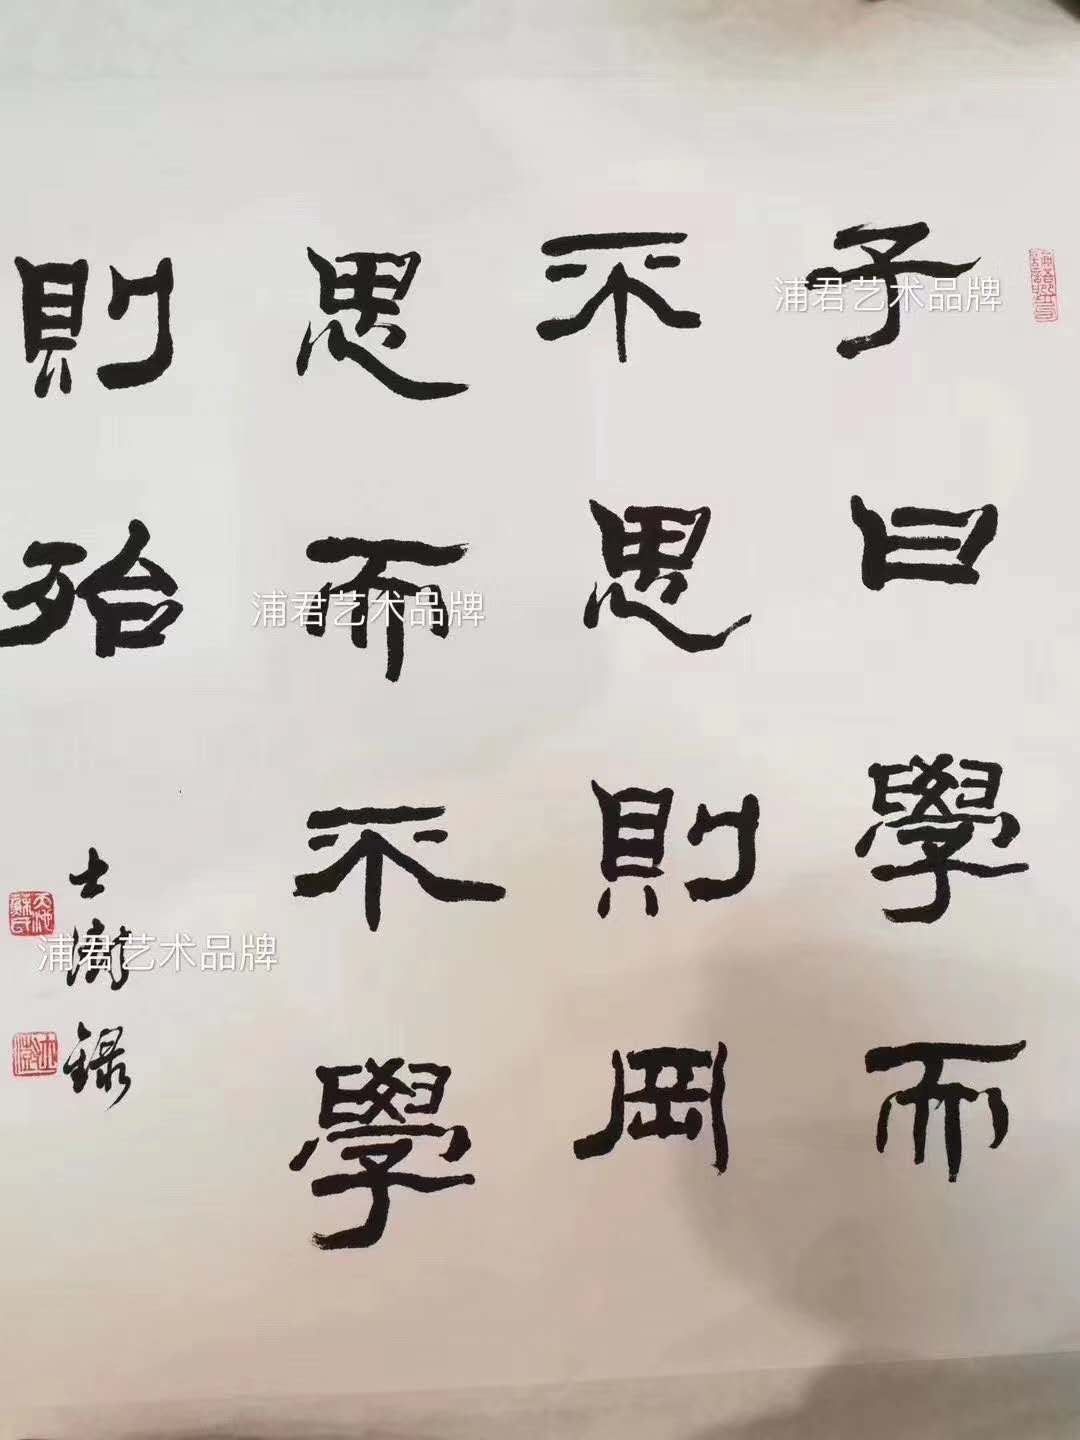 子曰學而
不思則罔
思而不學
則殆
士澍録
浦君艺术品牌
浦君艺术品牌
浦君艺术品牌